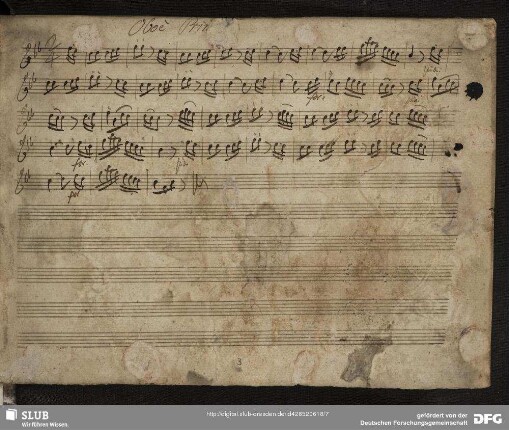 Oboè Prim
for.
for.
for.
3
SLUB
Wir führen Wissen.
http://digital.slub-dresden.de/id428523618/7
gefördert von der
Deutschen Forschungsgemeinschaft
DFG